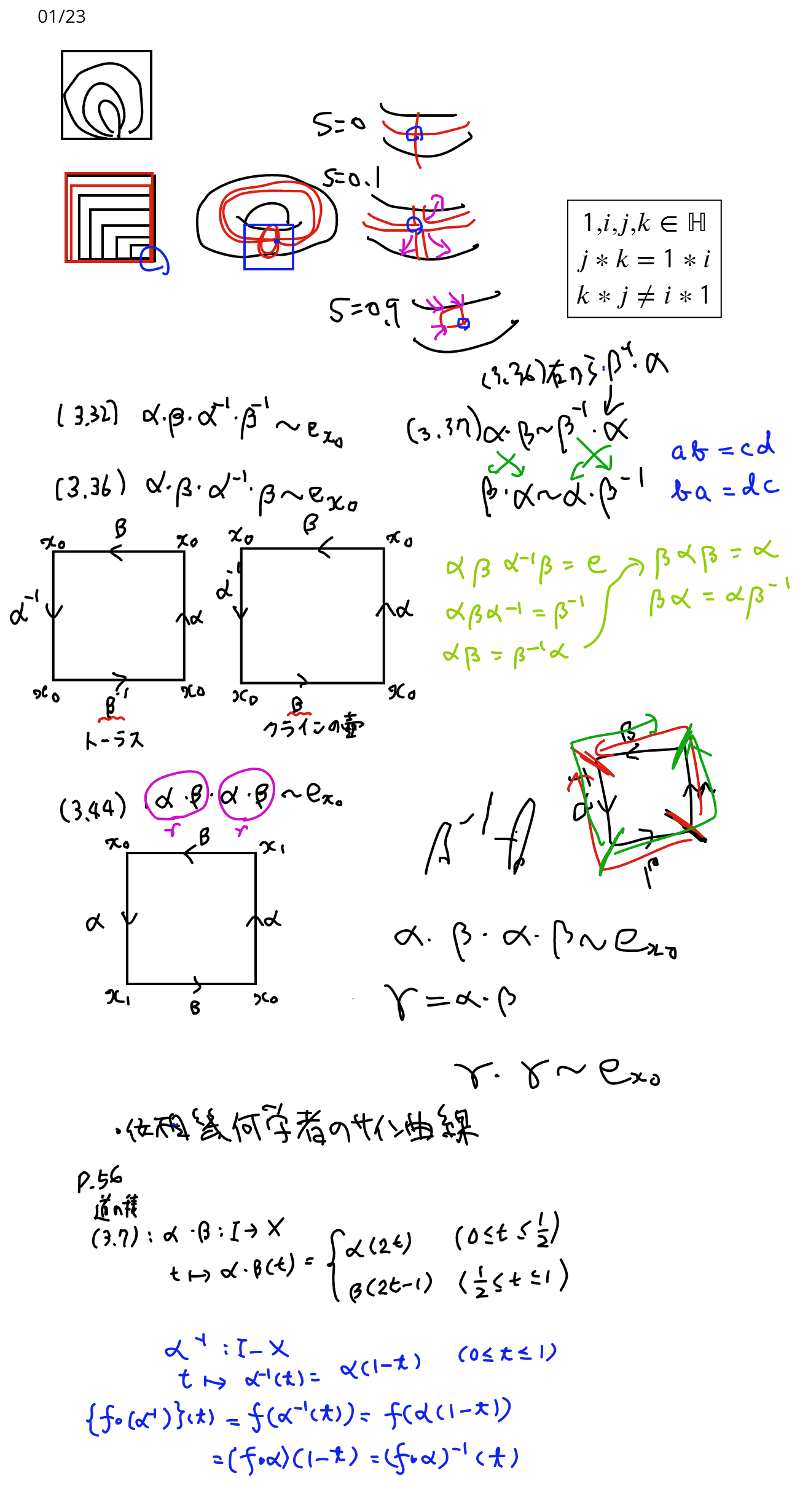 01/23
S=0
S=0.1
S=0.9
1,i,j,k ∈ ℍ
j ∗ k = 1 ∗ i
k ∗ j ≠ i ∗ 1
(3.36)右から β⁻¹·α
(3.32) α·β·α⁻¹·β⁻¹ ~ e_x₀
(3.37) α·β ~ β⁻¹·α
β·α ~ α·β⁻¹
ab = cd
ba = dc
(3.36) α·β·α⁻¹·β ~ e_x₀
x₀ β x₀
α⁻¹ α
x₀ β⁻¹ x₀
トーラス
x₀ β x₀
α⁻¹ α
x₀ β x₀
クラインの壷
αβα⁻¹β = e
αβα⁻¹ = β⁻¹
αβ = β⁻¹α
βαβ = α
βα = αβ⁻¹
(3.44) α·β·α·β ~ e_x₀
r r
x₀ β x₁
α α
x₁ β x₀
β
β⁻¹β
α·β·α·β ~ e_x₀
γ = α·β
γ·γ ~ e_x₀
·位相幾何学者のサイン曲線
P.56
道の積
(3.7) : α·β : I → X
t ↦ α·β(t) = { α(2t) (0 ≤ t ≤ 1/2)
β(2t-1) (1/2 ≤ t ≤ 1)
α⁻¹ : I – X
t ↦ α⁻¹(t) = α(1-t) (0 ≤ t ≤ 1)
{f∘(α⁻¹)}(t) = f(α⁻¹(t)) = f(α(1-t))
= (f∘α)(1-t) = (f∘α)⁻¹(t)